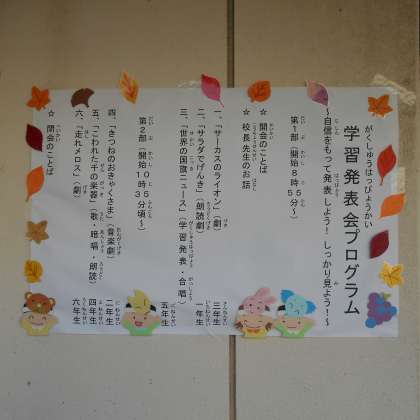 がくしゅうはっぴょうかい
学習発表会プログラム
～自信をもって発表しよう！ しっかり見よう！～
第1部（開始8時55分～）
☆開会のことば
☆校長先生のお話
一、「サーカスのライオン」（劇） 三年生
二、「サラダでげんき」（朗読劇） 一年生
三、「世界の国旗ニュース」（学習発表・合唱） 五年生
第2部（開始10時35分頃～）
四、「きつねのおきゃくさま」（音楽劇） 二年生
五、「こわれた千の楽器」（歌・暗唱・朗読） 四年生
六、「走れメロス」（劇） 六年生
☆閉会のことば